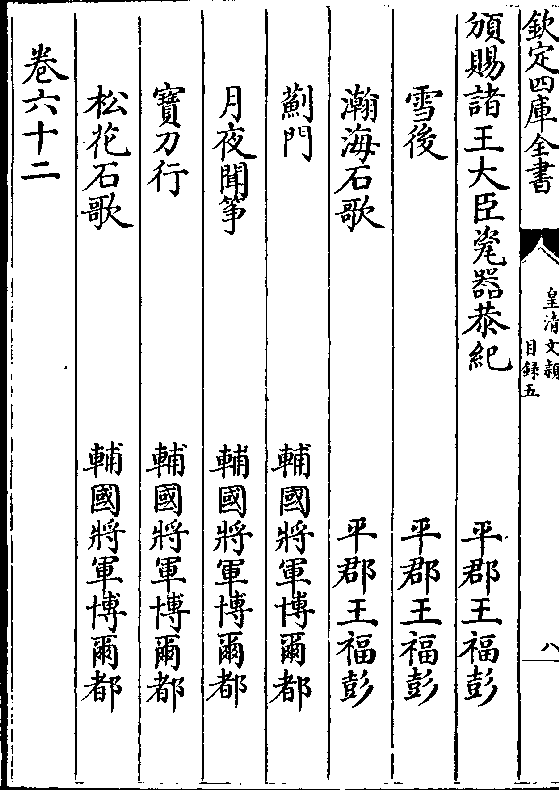 欽定四庫全書
皇清文穎
目錄五
八
頒賜諸王大臣瓷器恭紀 平郡王福彭
雪後 平郡王福彭
瀚海石歌 平郡王福彭
薊門 輔國將軍博爾都
月夜聞箏 輔國將軍博爾都
寶刀行 輔國將軍博爾都
松花石歌 輔國將軍博爾都
卷六十二